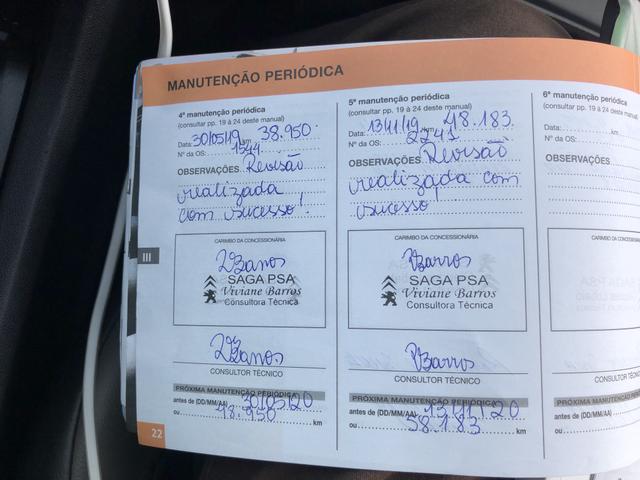 MANUTENÇÃO PERIÓDICA
4ª manutenção periódica
(consultar pp. 19 à 24 deste manual)
Data: 30/05/19 km 38.950
Nº da OS: 1544
OBSERVAÇÕES Revisão
realizada
com sucesso!
CARIMBO DA CONCESSIONÁRIA
SAGA PSA
Viviane Barros
Consultora Técnica
CONSULTOR TÉCNICO
PRÓXIMA MANUTENÇÃO PERIÓDICA
antes de (DD/MM/AA) 30/05/20
ou 48.950 km
5ª manutenção periódica
(consultar pp. 19 à 24 deste manual)
Data: 13/11/19 km 48.183
Nº da OS: 2241
OBSERVAÇÕES Revisão
realizada com
sucesso!
CARIMBO DA CONCESSIONÁRIA
VBarros
SAGA PSA
Viviane Barros
Consultora Técnica
VBarros
CONSULTOR TÉCNICO
PRÓXIMA MANUTENÇÃO PERIÓDICA
antes de (DD/MM/AA) 13/11/20
ou 58.183 km
6ª manutenção periódica
(consultar pp. 19 à 24 deste manual)
Data: km
Nº da OS:
OBSERVAÇÕES
CARIMBO DA CON
CONSULTOR
PRÓXIMA MANUTENÇÃO
antes de (DD/MM/AA)
ou
III
22